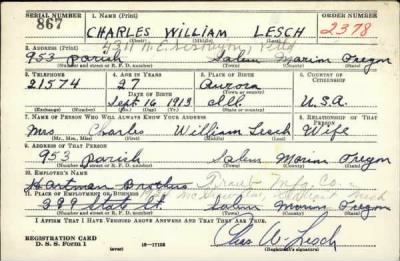 SERIAL NUMBER 1. NAME (Print) ORDER NUMBER
867 CHARLES WILLIAM LESCH 2378
(First) (Middle) (Last)
2. ADDRESS (Print)
953 Parish Salem Marion Oregon
(Number and street or R. F. D. number) (Town) (County) (State)
3. TELEPHONE 4. AGE IN YEARS 5. PLACE OF BIRTH 6. COUNTRY OF CITIZENSHIP
21574 27 Aurora
DATE OF BIRTH (Town or county)
Sept 16 1913 Ill. U.S.A.
(Exchange) (Number) (Mo.) (Day) (Yr.) (State or country)
7. NAME OF PERSON WHO WILL ALWAYS KNOW YOUR ADDRESS 8. RELATIONSHIP OF THAT PERSON
Mrs. Charles William Lesch Wife
(Mr., Mrs., Miss) (First) (Middle) (Last)
9. ADDRESS OF THAT PERSON
953 Parish Salem Marion Oregon
(Number and street or R. F. D. number) (Town) (County) (State)
10. EMPLOYER'S NAME
Hartman Brothers
11. PLACE OF EMPLOYMENT OR BUSINESS
399 State St. Salem Marion Oregon
(Number and street or R. F. D. number) (Town) (County) (State)
I AFFIRM THAT I HAVE VERIFIED ABOVE ANSWERS AND THAT THEY ARE TRUE.
REGISTRATION CARD
D. S. S. Form 1 (over) 16-17105 Chas W. Lesch
(Registrant's signature)